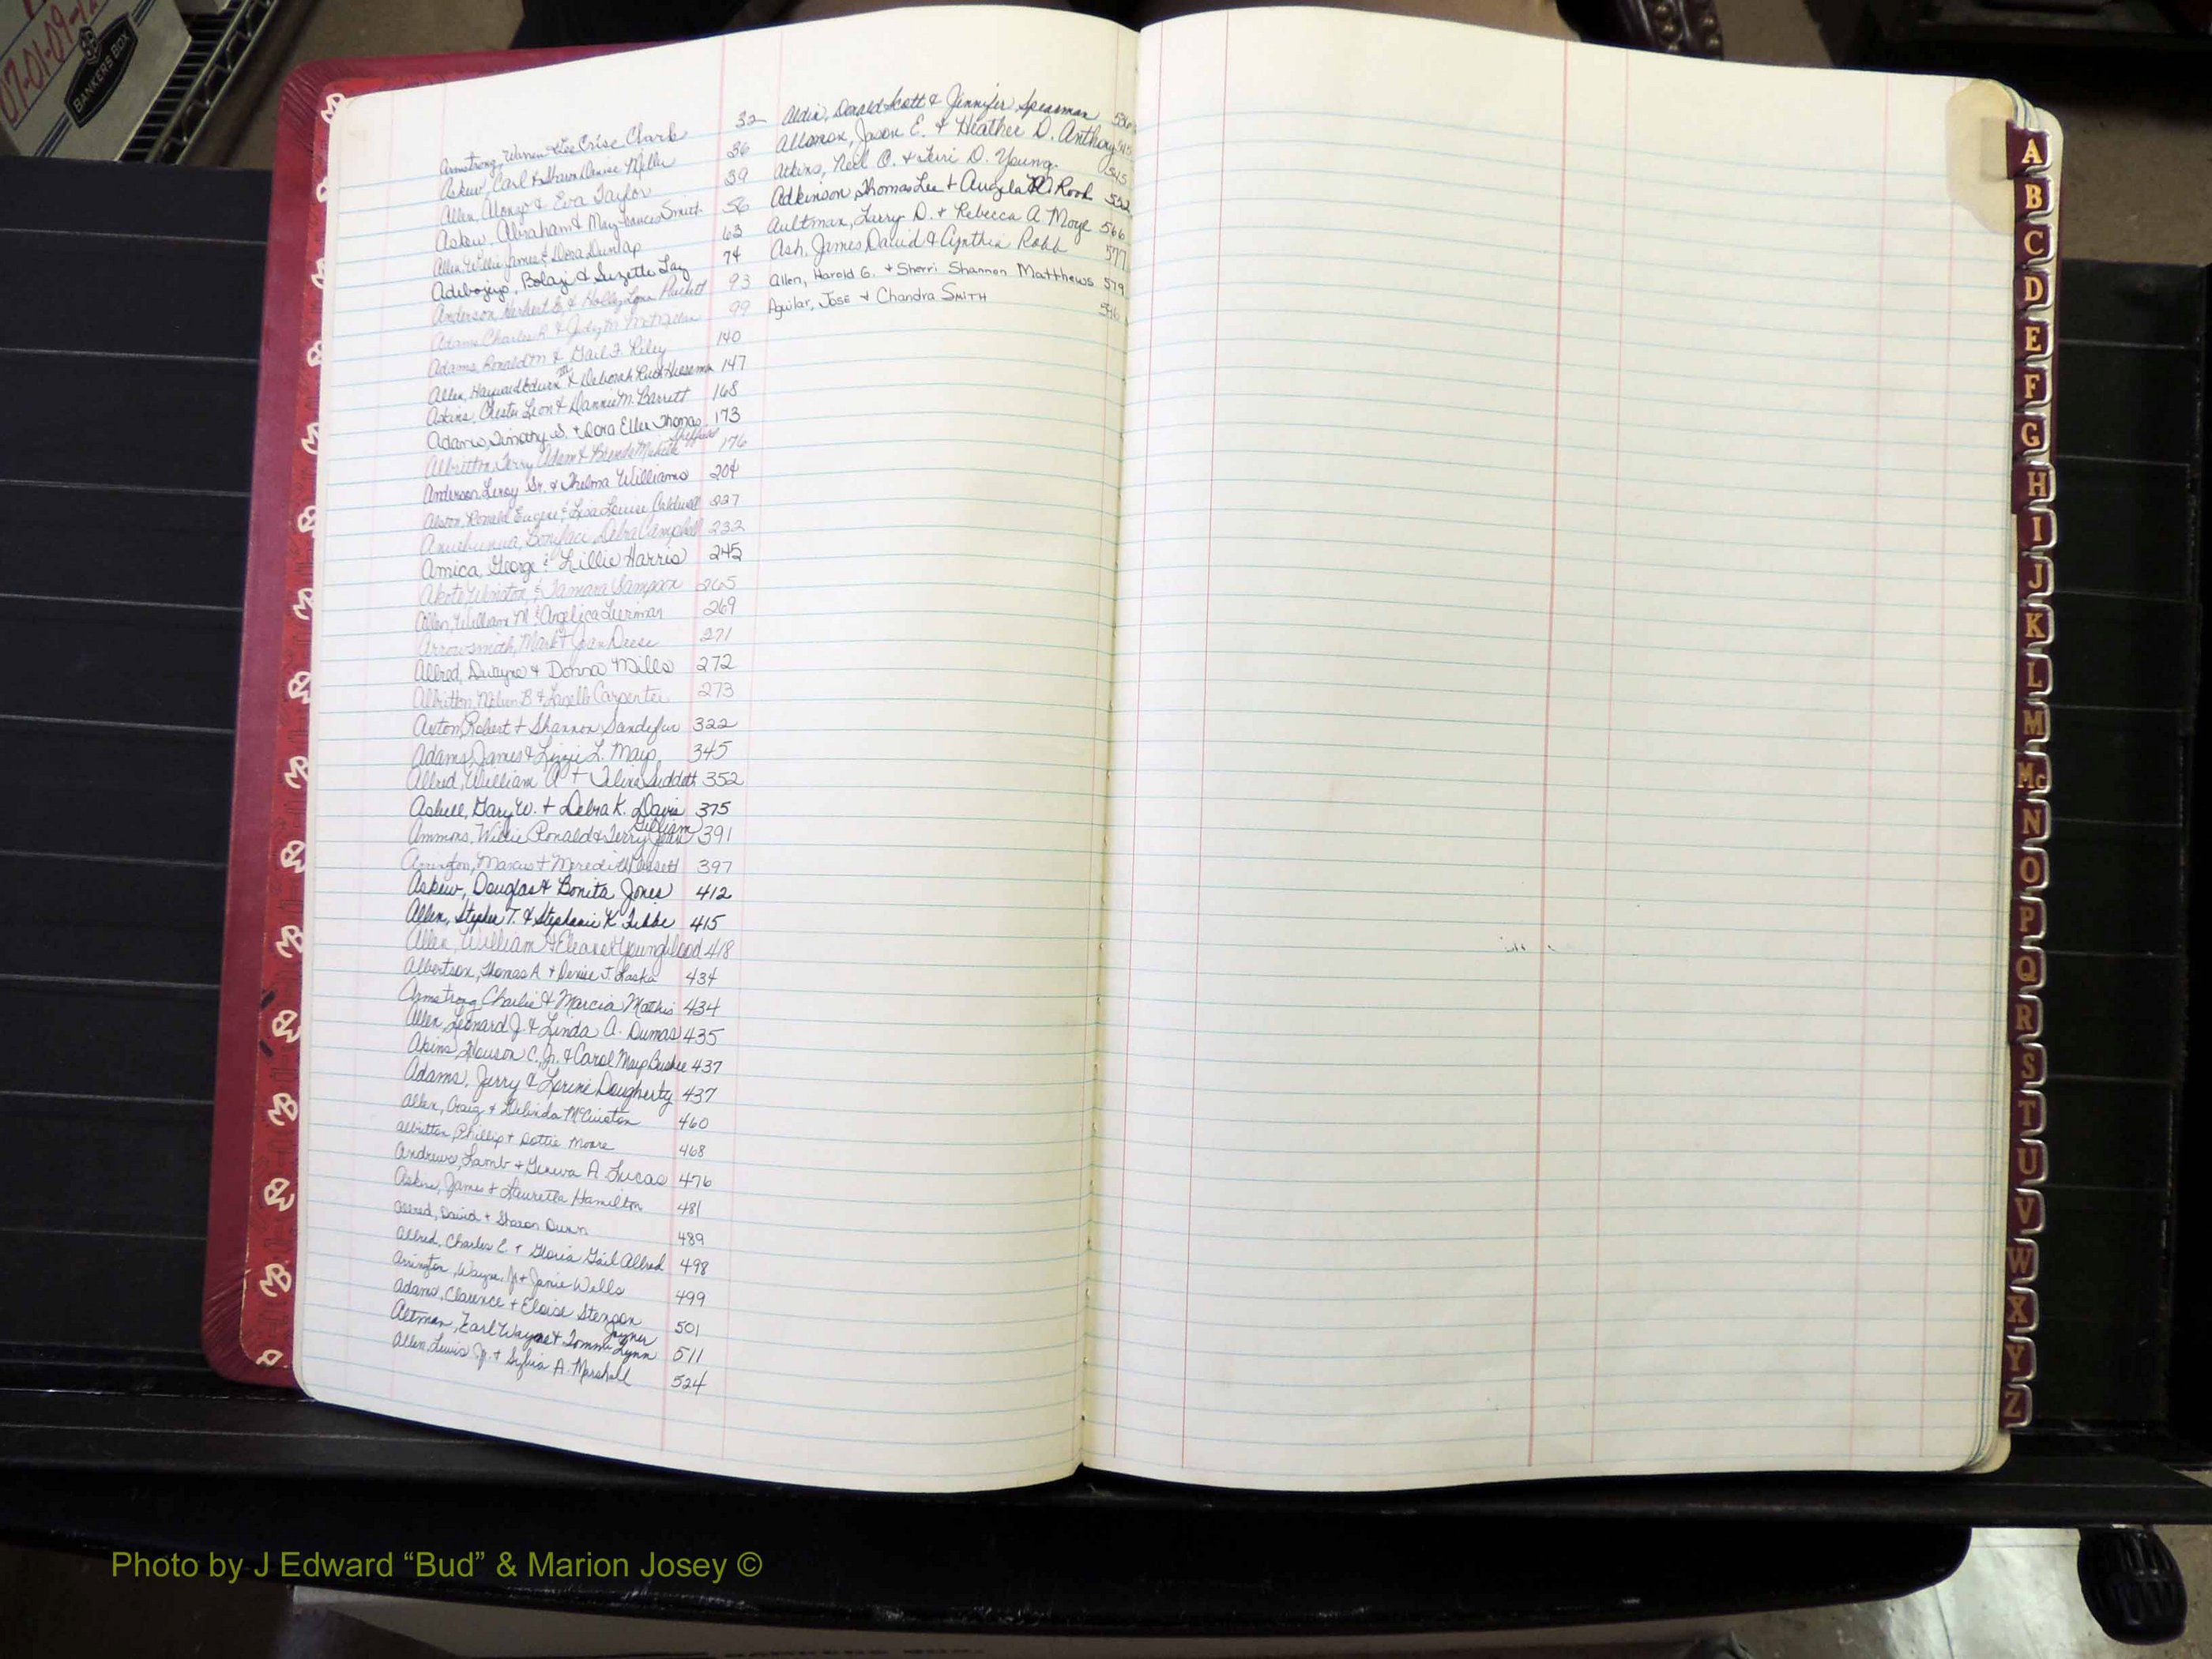 BANKERS BOX
Armstrong, Warren & Crise Clark 32
Askew, Carl & Shawn Denise Miller 36
Allen, Alonzo & Eva Taylor 39
Askew, Abraham & Mary Smith 56
Allen, Willie James & Dora Dunlap 63
Adebojejo, Bolaji & Suzette Lay 74
Anderson, Herbert E. & Holly Lynn Puckett 93
Adams, Charles R. & Judy M. McMillan 99
Adams, Ronald M & Gail F. Riley 140
Allen, Hayward Edwin III & Deborah Ruth 147
Askins, Chester Leon & Dannie M. Barrett 168
Adams, Timothy S. & Dora Ellen Thomas 173
Albritton, Terry Adam & Brenda Michelle Sheffield 176
Anderson, Leroy Sr. & Thelma Williams 204
Alston, Ronald Eugene & Lisa Louise Caldwell 227
Boniface, Debra Campbell 232
Amica, George & Lillie Harris 245
Akote, Winston, & Tamara Sampson 265
Allen, William M. & Angelica 269
Arrowsmith, Mark & Joan Deese 271
Allred, Dwayne & Donna Mills 272
Albritton, Nelson B & Lavelle Carpenter 273
Axtom, Robert & Shannon Sandefur 322
Adams, James & Lizzie L. Mays 345
Allred, William A + Suddath 352
Asbell, Gary W. + Debra K. Davis 375
Ammons, Willie Ronald & Terry Jean Gilliam 391
Arrington, Marcus + Meredith 397
Askew, Douglas & Bonita Jones 412
Allen, Stephen T. & Stephanie K. Tibbe 415
Allen, William & Eleanor Youngblood 418
Albertson, Thomas A. + Denise J. Laska 434
Armstrong, Charlie & Marcia Mathis 434
Allen, Leonard J. & Linda A. Dumas 435
Akins, Houson C., Jr. & Carol Mayo Busbee 437
Adams, Jerry & Lorine Dougherty 437
Allen, Craig + Delinda McCuiston 460
Albritton, Phillip + Dottie Moore 468
Andrews, Lamb + Geneva A. Lucas 476
Askew, James + Lauretta Hamilton 481
Allred, David + Sharon Dunn 489
Allred, Charles E. + Gloria Gail Allred 498
Arrington, Wayne, Jr + Janie Wells 499
Adams, Clarence + Eloise Stenson 501
Altman, Earl Wayne + Tommie Lynn Joyner 511
Allen, Lewis Jr. + Sylvia A. Marshall 524
Aldin, Donald Scott & Jennifer Spearman
Allanson, Jason E. & Heather D. Anthony
Atkins, Neil O. + Terri D. Young 545
Adkinson, Thomas Lee + Angela M Rook 552
Aultman, Larry D. + Rebecca A. Moye 566
Ash, James David & Cynthia Robb 577
Allen, Harold G. + Sherri Shannon Matthews 579
Aguilar, Jose + Chandra Smith
A
B
C
D
E
F
G
H
I
J
K
L
M
Mc
N
O
P
Q
R
S
T
U
V
W
X
Y
Z
Photo by J Edward “Bud” & Marion Josey ©